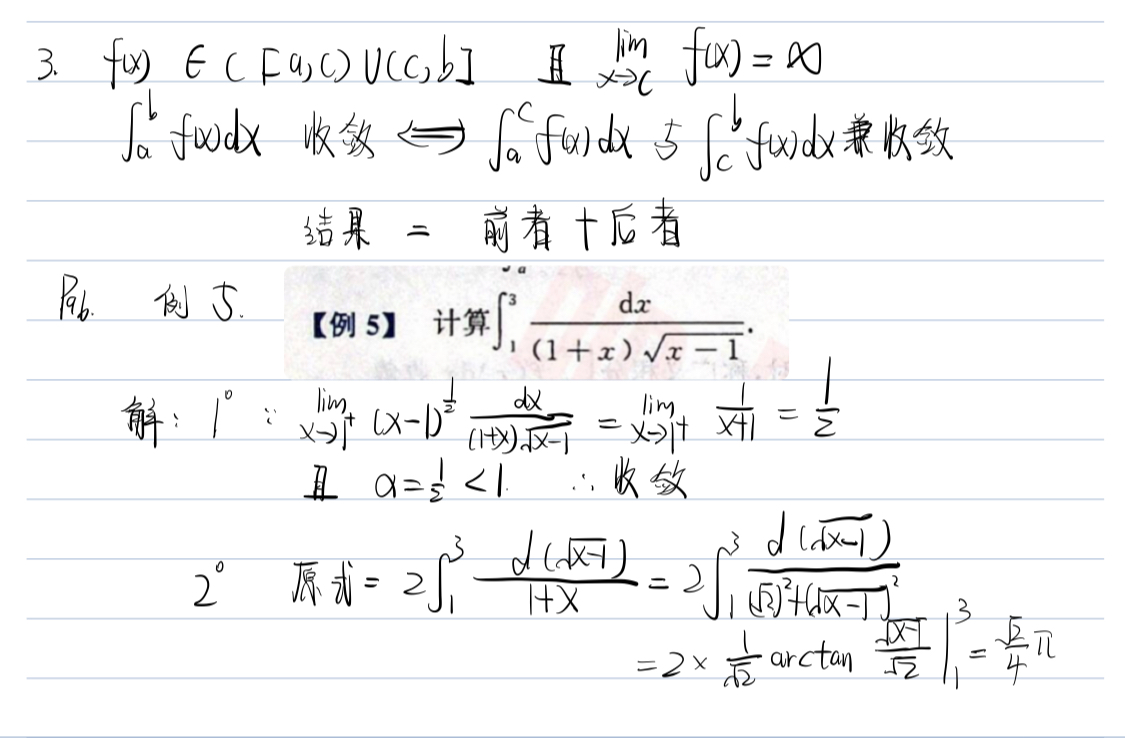 3. f(x) ∈ C [a,c) ∪ (c,b] 且 lim_{x→c} f(x) = ∞
∫_a^b f(x)dx 收敛 ⟺ ∫_a^c f(x)dx 与 ∫_c^b f(x)dx 兼收敛
结果 = 前者 + 后者
例 5.
【例 5】 计算∫_1^3 dx/((1+x)√(x-1)).
解: 1° ∵ lim_{x→1⁺} (x-1)^{1/2} dx/((1+x)√(x-1)) = lim_{x→1⁺} 1/(x+1) = 1/2
且 α = 1/2 < 1. ∴ 收敛
2° 原式 = 2∫_1^3 d(√(x-1))/(1+x) = 2∫_1^3 d(√(x-1))/((√2)²+(√(x-1))²)
= 2 × 1/√2 arctan √(x-1)/√2 |_1^3 = √2/4 π